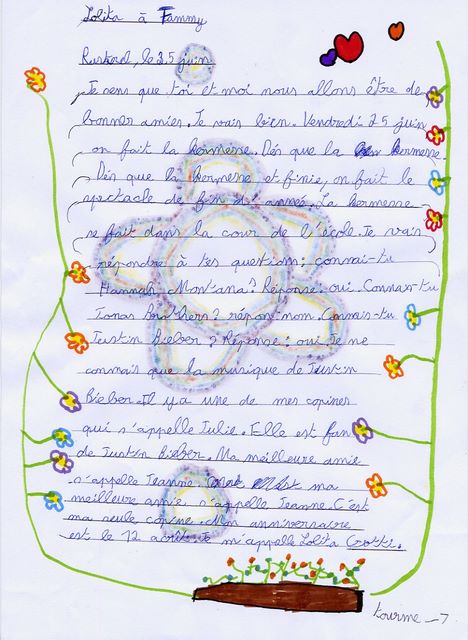 Lolita à Fammy
Rustrel, le 25 juin
Je sens que toi et moi nous allons être de
bonnes amies. Je vais bien. Vendredi 25 juin
on fait la kermesse. Dés que la kermesse
Dés que la kermesse et finie, on fait le
spectacle de fin d'année. La kermesse
se fait dans la cour de l'école. Je vais
répondre à tes question: connai-tu
Hannah Montana? Réponse: oui. Connais-tu
Jonas Brothers? répon: non. Connais-tu
Justin Bieber? Réponse: oui. Je ne
connais que la musique de Justin
Bieber. Il y a une de mes copines
qui s'appelle Julie. Elle est fan
de Justin Bieber. Ma meilleure amie
s'appelle Jeanne. ma
meilleure amie s'appelle Jeanne. C'est
ma seule copine. Mon anniversaire
est le 12 août. Je m'appelle Lolita Crotti.
tourne →